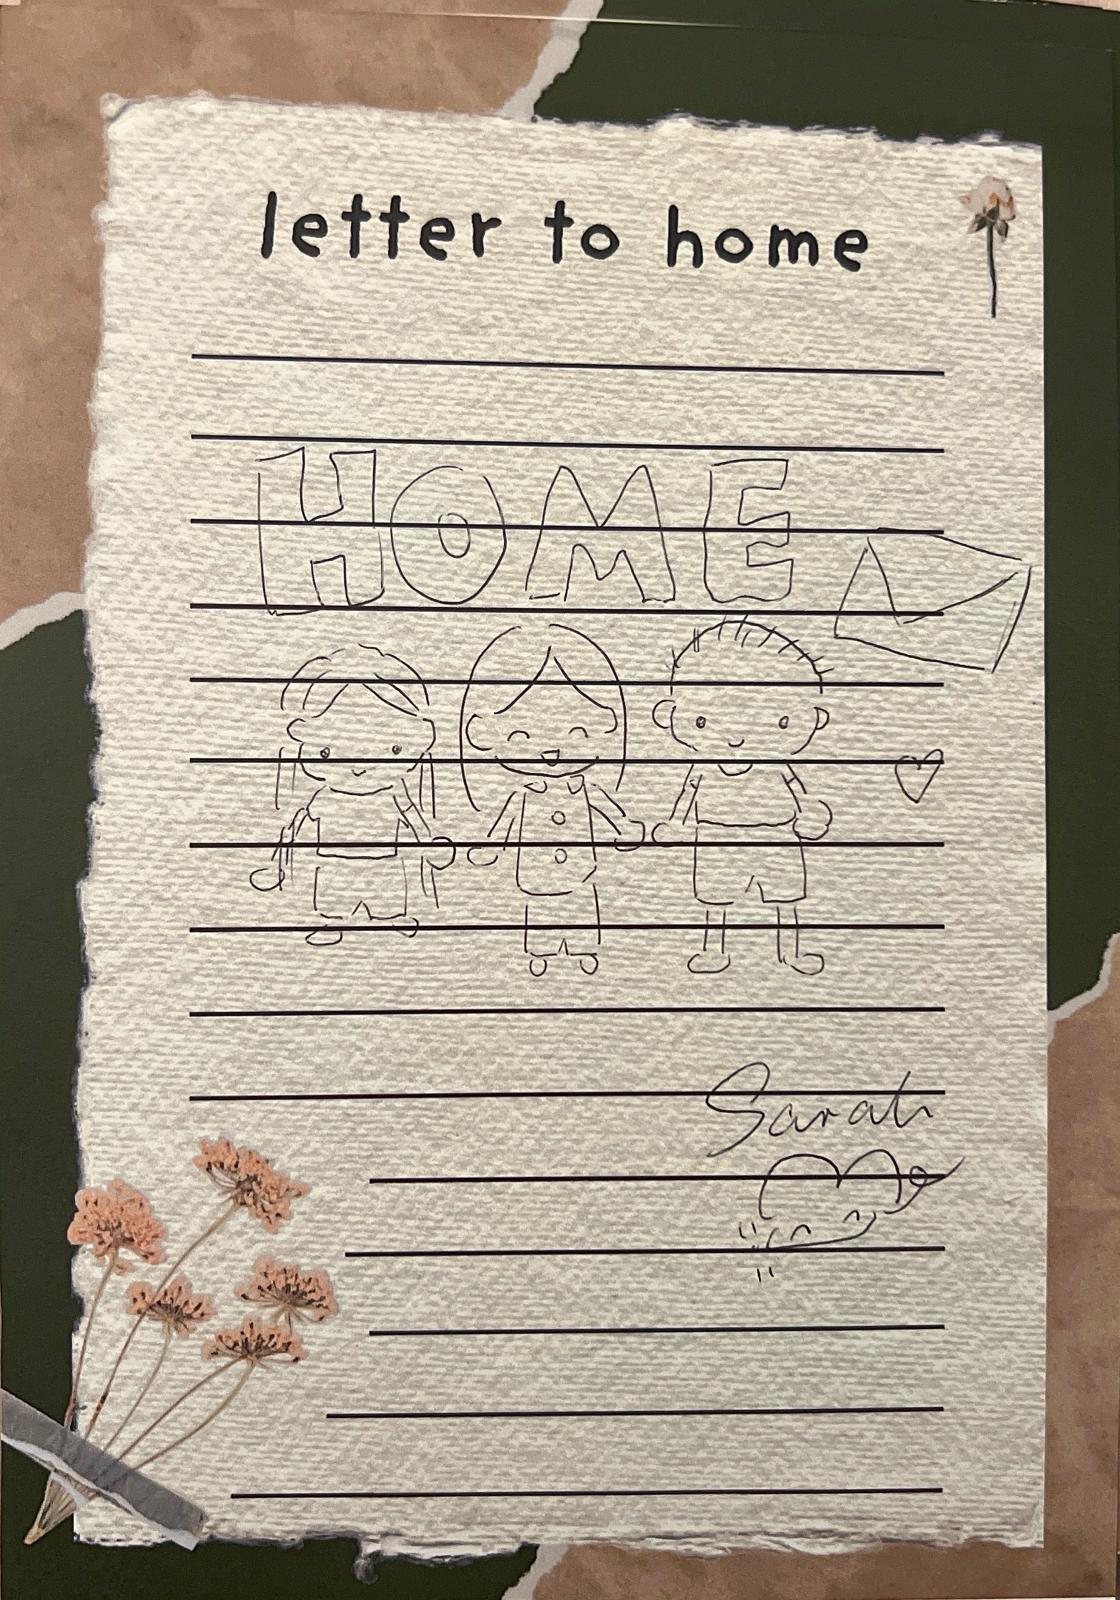 letter to home
HOME
Sarah